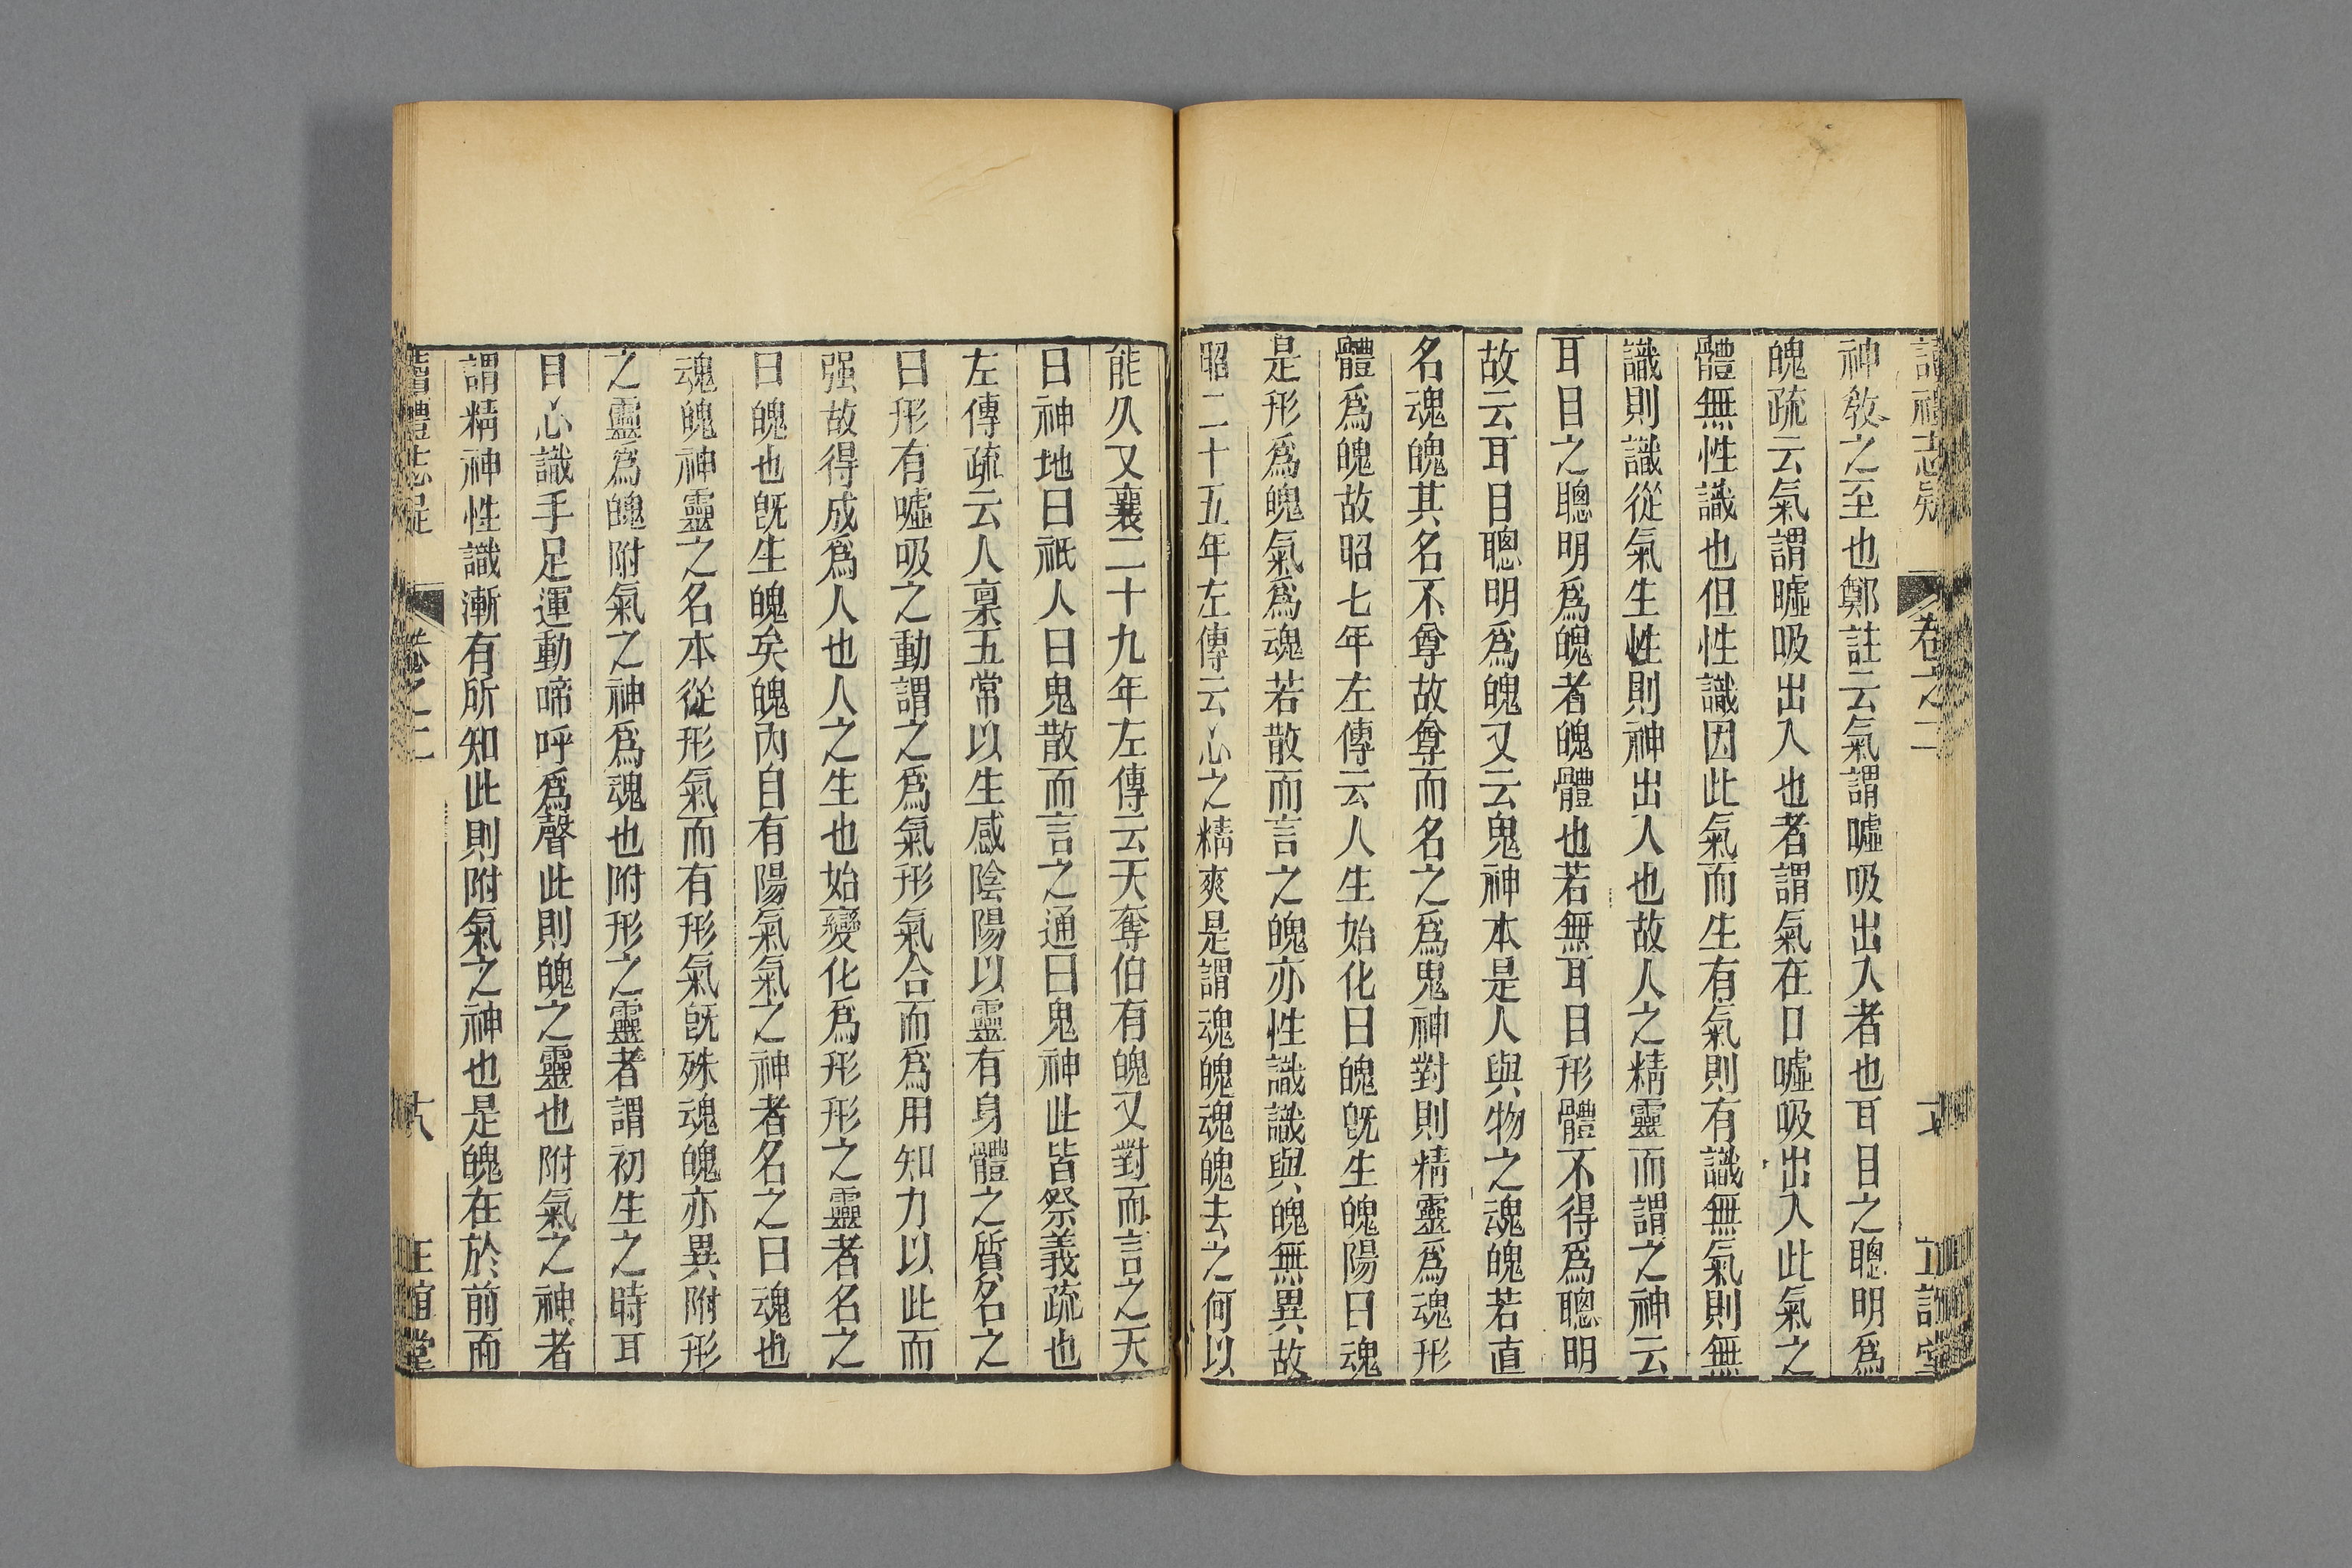 神敎之至也鄭註云氣謂噓吸出入者也耳目之聰明爲
魄疏云氣謂噓吸出入也者謂氣在口噓吸出入此氣之
體無性識也但性識因此氣而生有氣則有識無氣則無
識則識從氣生性則神出入也故人之精靈而謂之神云
耳目之聰明爲魄者魄體也若無耳目形體不得爲聰明
故云耳目聰明爲魄又云鬼神本是人與物之魂魄若直
名魂魄其名不尊故尊而名之爲鬼神對則精靈爲魂形
體爲魄故昭七年左傳云人生始化曰魄旣生魄陽曰魂
是形爲魄氣爲魂若散而言之魄亦性識識與魄無異故
昭二十五年左傳云心之精爽是謂魂魄魂魄去之何以
能久又襄二十九年左傳云天奪伯有魄又對而言之天
曰神地曰祇人曰鬼散而言之通曰鬼神此皆祭義疏也
左傳疏云人稟五常以生感陰陽以靈有身體之質名之
曰形有噓吸之動謂之爲氣形氣合而爲用知力以此而
强故得成爲人也人之生也始變化爲形形之靈者名之
曰魄也旣生魄矣魄內自有陽氣氣之神者名之曰魂也
魂魄神靈之名本從形氣而有形氣旣殊魂魄亦異附形
之靈爲魄附氣之神爲魂也附形之靈者謂初生之時耳
目心識手足運動啼呼爲聲此則魄之靈也附氣之神者
謂精神性識漸有所知此則附氣之神也是魄在於前而
卷之二